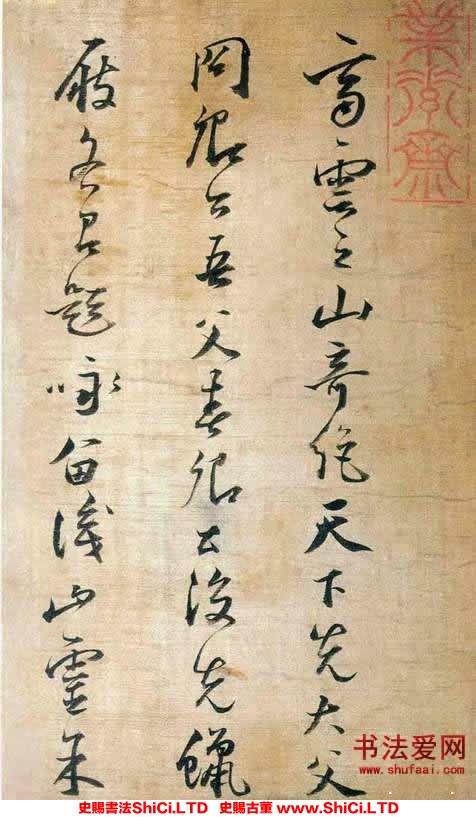 齊雲之山奇絕天下先大父
冏卿公吾父春卿公後先蠟
屐各有題咏留識山靈
书法爱网
www.shufaai.com
史賜書法ShiCi.LTD 史賜古董 www.ShiCi.LTD